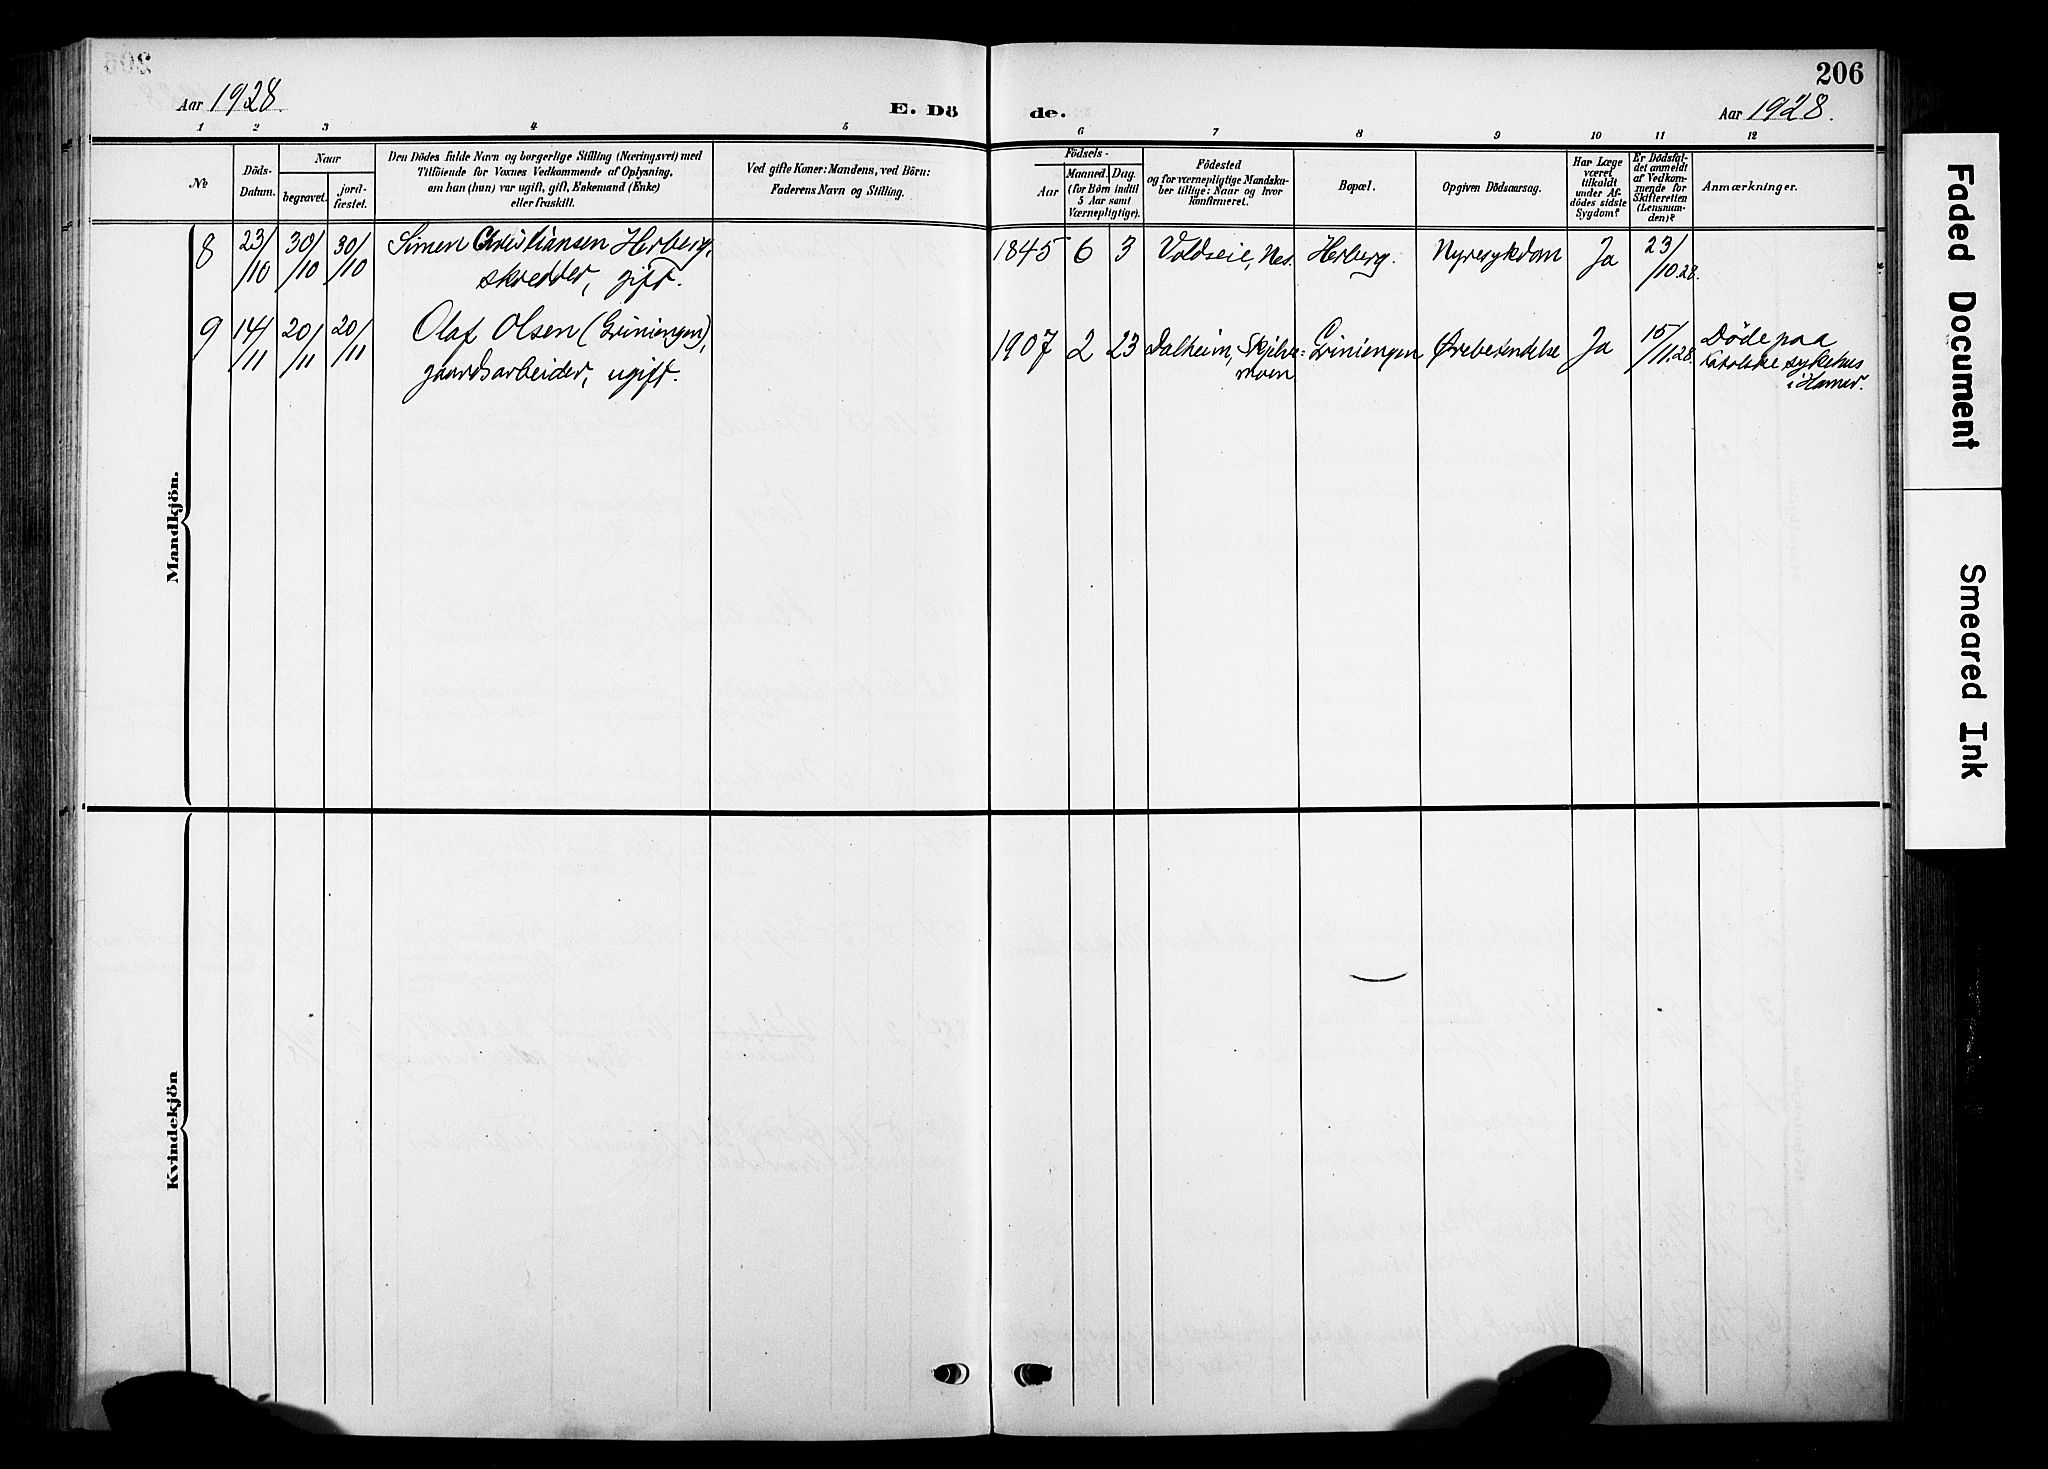 206
Aar 1928.
E. Dö
de.
Aar 1928.
1 2 3 4 5 6 7 8 9 10 11 12
No
Döds-
Datum.
Naar
begravet.
jord-
fæstet.
Den Dödes fulde Navn og borgerlige Stilling (Næringsvei) med
Tilföiende for Voxnes Vedkommende af Oplysning,
om han (hun) var ugift, gift, Enkemand (Enke)
eller fraskilt.
Ved gifte Koner: Mandens, ved Börn:
Faderens Navn og Stilling.
Födsels-
Aar
Maaned. Dag.
(for Börn indtil
5 Aar samt
Værnepligtige).
Födested
og for værnepligtige Mandska-
ber tillige: Naar og hvor
konfirmeret.
Bopæl.
Opgiven Dödsaarsag.
Har Læge
været
tilkaldt
under Af-
dödes sidste
Sygdom?
Er Dödsfal-
det anmeldt
af Vedkom-
mende for
Skifteretten
(Lensman-
den)?
Anmærkninger.
Mandkjön.
8 23/10 30/10 30/10 Simen Christiansen Herberg, 1845 6 3 Voldseie, Nes. Herberg. Nyresykdom Ja 23/10.28.
skredder, gift.
9 14/11 20/11 20/11 Olaf Olsen (Griniengen), 1907 2 23 Dalheim, Skjelve- Griniengen Ørebetendelse Ja 15/11.28. Döde paa
gaardsarbeider, ugift. moen katolske sykehus
i Hamar.
Kvindekjön
Faded Document
Smeared Ink